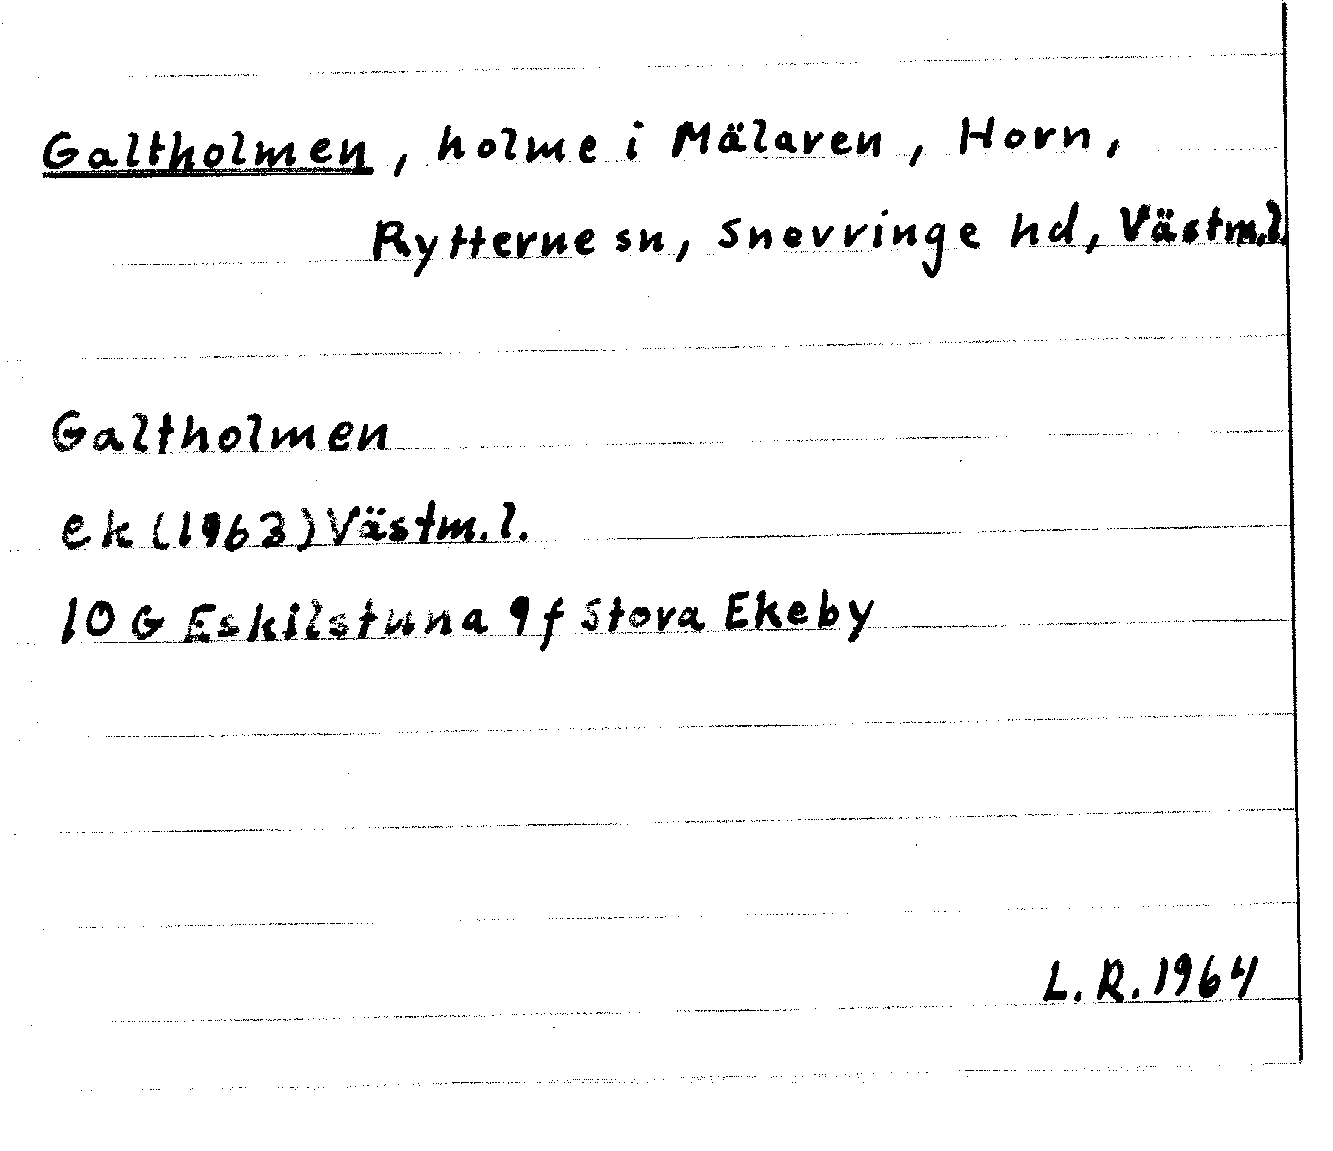 Galtholmen, holme i Mälaren, Horn,
Rytterne sn, Snevringe hd, Västm.l.
Galtholmen
ek (1963) Västm.l.
10 G Eskilstuna 9f Stora Ekeby
L. R. 1964